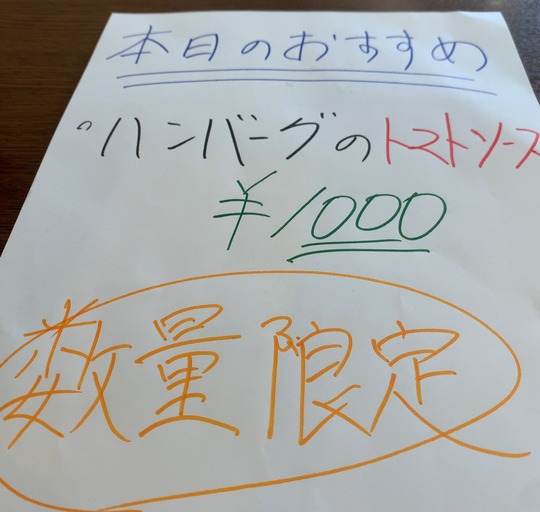 本日のおすすめ
°ハンバーグのトマトソース
¥1000
数量限定